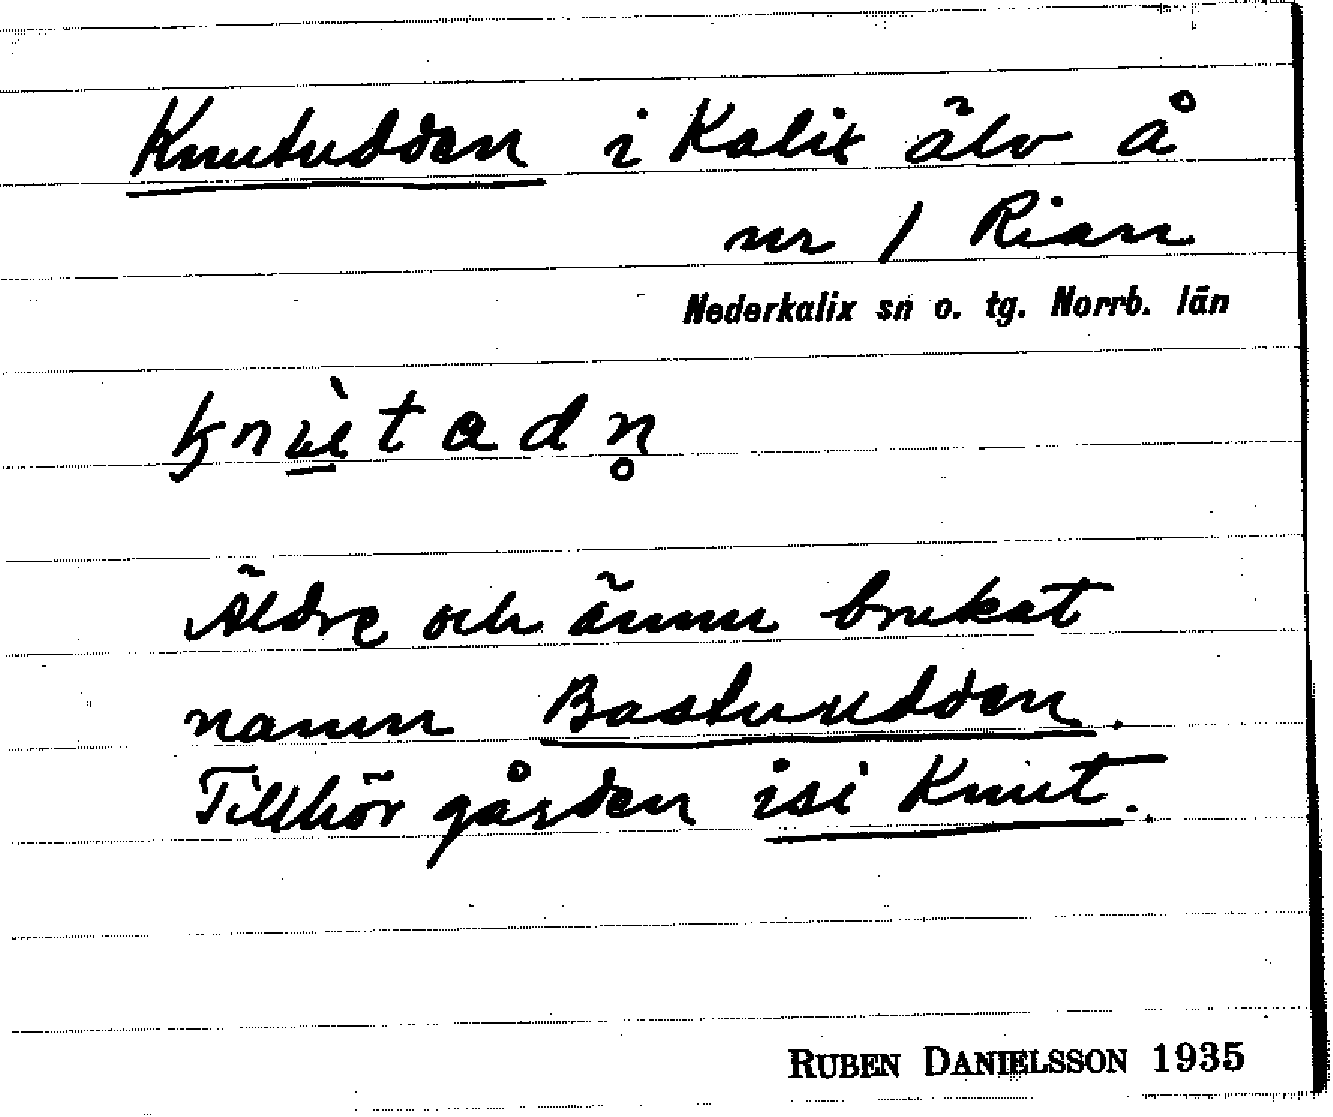 Knutudden i Kalix älv å
nr 1 Rian
Nederkalix sn o. tg. Norrb. län
Äldre och ännu brukat
namn Bastuudden.
Tillhör gården isi Knut.
RUBEN DANIELSSON 1935